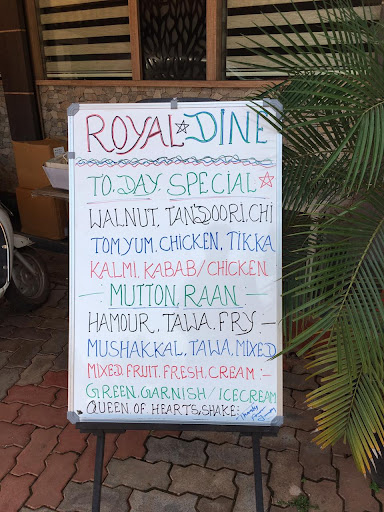 ROYAL☆DINE
TO.DAY.SPECIAL☆
WALNUT.TANDOORI.CHI
TOMYUM.CHICKEN.TIKKA
KALMI.KABAB/CHICKEN
- MUTTON.RAAN -
HAMOUR.TAWA.FRY:-
MUSHAKKAL.TAWA.MIXED
MIXED.FRUIT.FRESH.CREAM:-
GREEN.GARNISH/ICECREAM
QUEEN OF HEARTS.SHAKE: